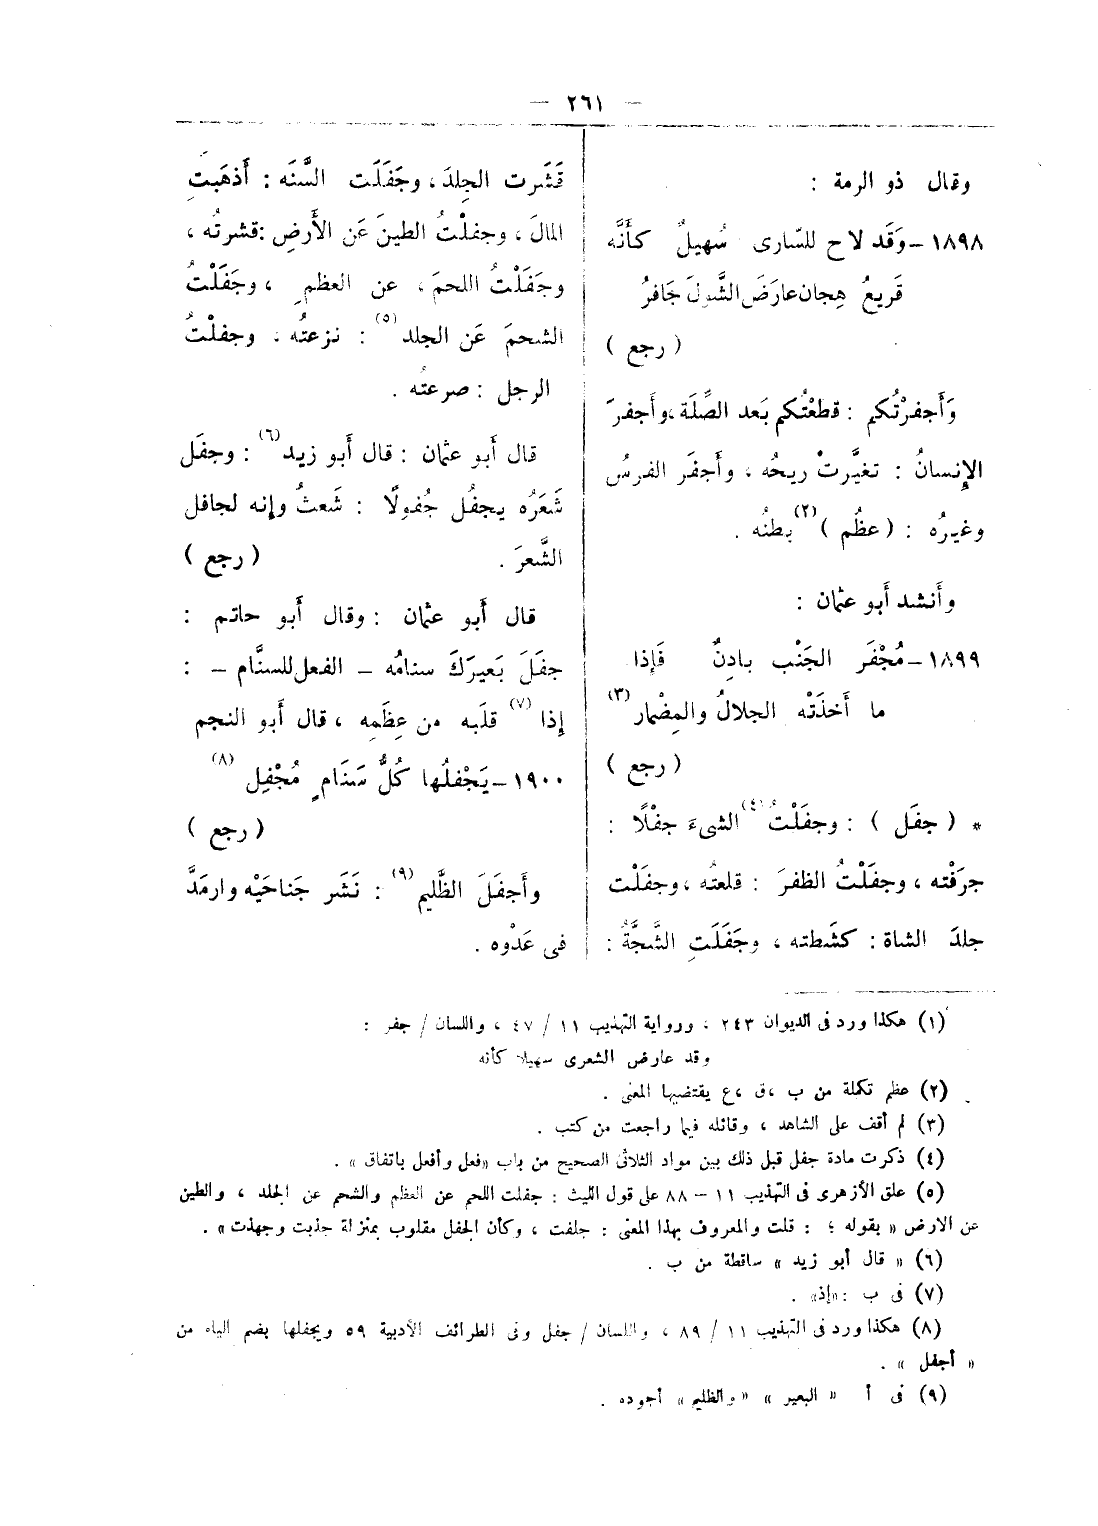 — ٢٦١ —
وقال ذو الرمة :
١٨٩٨ – وَقَد لاح للسّارى سُهيلٌ كأَنَّه
قَريعُ هِجان عارَضَ الشَّولَ جَافرُ
( رجع )
وَأَجفرْتُكم : قطعْتُكم بَعد الصِّلَة ، وأَجفرَ
الإِنسانُ : تغيَّرتْ ريحُه ، وأَجفَر الفرسُ
وغيرُه : ( عظُم )(٢) بطنُه .
وأَنشد أَبو عثمان :
١٨٩٩ – مُجْفَر الجَنْب بادِنٌ فَإِذا
ما أَخذَتْه الجلالُ والمِضْمار(٣)
( رجع )
* ( جفَل ) : وجفَلْتُ(٤) الشىءَ جفْلًا :
جرَفْته ، وجفَلْتُ الظفرَ : قلعتُه ، وجفَلْت
جلدَ الشاة : كشَطته ، وجَفَلَتِ الشَّجَّةُ :
قَشَرت الجِلدَ ، وجَفَلَت السَّنَه : أَذهَبتِ
المالَ ، وجفلْتُ الطينَ عَن الأَرضِ : قشرتُه ،
وجَفَلْتُ اللحمَ ، عن العظمِ ، وجَفَلْتُ
الشحمَ عَن الجلد(٥) : نزعتُه ، وجفلْتُ
الرجل : صرعتُه .
قال أَبو عثمان : قال أَبو زيد(٦) : وجفَل
شَعَرُه يجفُل جُفولًا : شَعثُ وإنه لجافل
الشَّعرَ . ( رجع )
قال أَبو عثمان : وقال أَبو حاتم :
جفَلَ بَعيرَكَ سنامُه – الفعل للسنَّام – :
إِذا(٧) قلَبه من عِظَمِه ، قال أَبو النجم
١٩٠٠ – يَجْفلُها كُلُّ سَنَامٍ مُجْفِل(٨)
( رجع )
وأَجفَلَ الظَّليم(٩) : نَشَر جَناحَيْه وارمَدَّ
فى عَدْوه .
(١) هكذا ورد فى الديوان ٢٤٣ ، ورواية التهذيب ١١ / ٤٧ ، واللسان / جفر :
وقد عارض الشعرى سهيلا كأنه
(٢) عظم تكملة من ب ، ق ، ع يقتضيها المعنى .
(٣) لم أقف على الشاهد ، وقائله فيما راجعت من كتب .
(٤) ذكرت مادة جفل قبل ذلك بين مواد الثلاثى الصحيح من باب «فعل وأفعل باتفاق » .
(٥) علق الأزهرى فى التهذيب ١١ – ٨٨ على قول الليث : جفلت اللحم عن العظم والشحم عن الجلد ، والطين
عن الارض « بقوله ؛ : قلت والمعروف بهذا المعنى : جلفت ، وكأن الجفل مقلوب بمنزلة جذبت وجهذت » .
(٦) « قال أبو زيد » ساقطة من ب .
(٧) فى ب : «إذ» .
(٨) هكذا ورد فى التهذيب ١١ / ٨٩ ، واللسان / جفل وفى الطرائف الأدبية ٥٩ ويجفلها بضم الياء من
« أجفل » .
(٩) فى أ « البعير » « والظليم » أجوده .